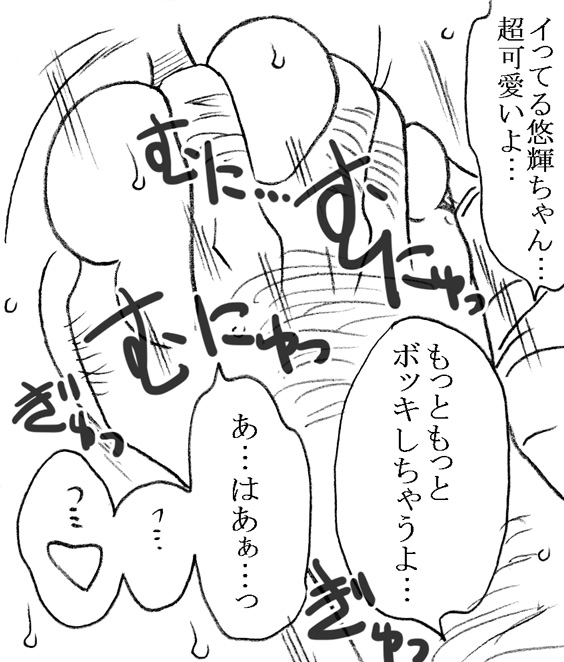 イってる悠輝ちゃん…
超可愛いよ…
むに…
むにゅっ
むにゅっ
もっともっと
ボッキしちゃうよ…
あ…はあぁ…っ
…
っ…
ぎゅっ
ぎゅっ